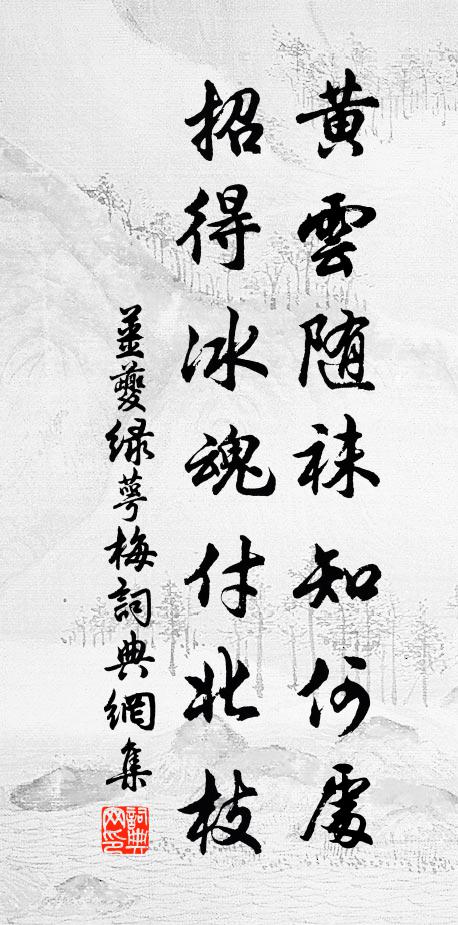 黄雲随袜知何處
招得冰魂付北枝
薑夔绿萼梅詞典網集
詞典网印